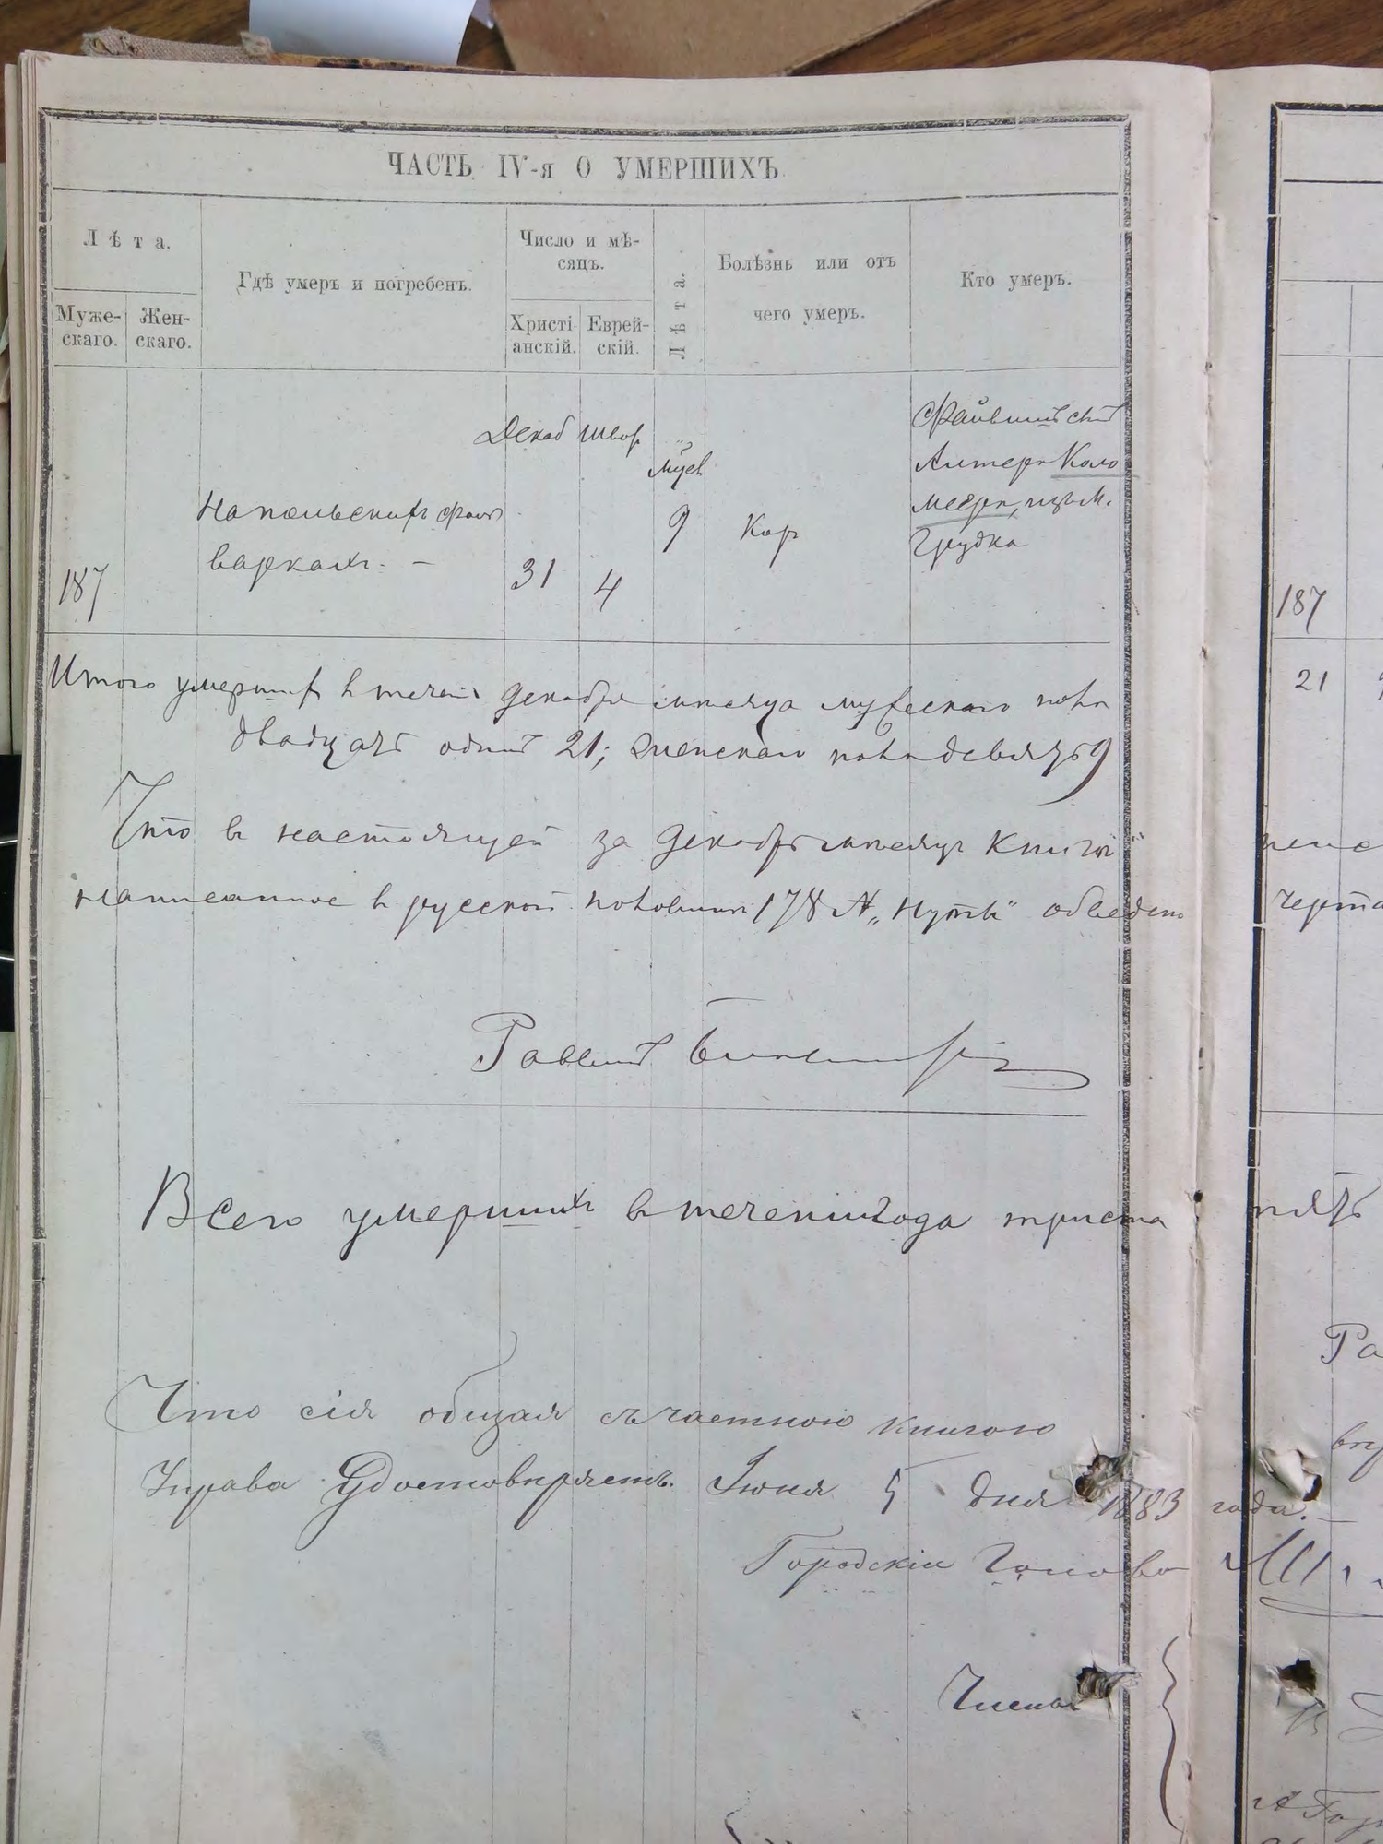 ЧАСТЬ IV-я О УМЕРШИХЪ.
Лѣта.
Муже-
скаго.
Жен-
скаго.
Гдѣ умеръ и погребенъ.
Число и мѣ-
сяцъ.
Христі
анскій.
Еврей-
скій.
Лѣта.
Болѣзнь или отъ
чего умеръ.
Кто умеръ.
187
На польскихъ фоль
варкахъ. –
Декаб
31
4
9
Кор
Файвишъ сынъ
Альтера Коло
меера, изъ м.
Грудка
187
Итого умершихъ в течен. декабря мѣсяца мужескаго пола
21
двадцать одинъ 21; женскаго пола девять 9
Что в настоящей за Декабрь мѣсяцъ книги
написанное в русской половинѣ 178 № „нуть" обведено
черта
Раввинъ
Всего умершихъ в теченіи года триста
пять
Ра
Что сія общая съ частною книгою
Управа Удостовѣряетъ. Іюня 5 дня 1883 года. –
Городскій Голова
Члены